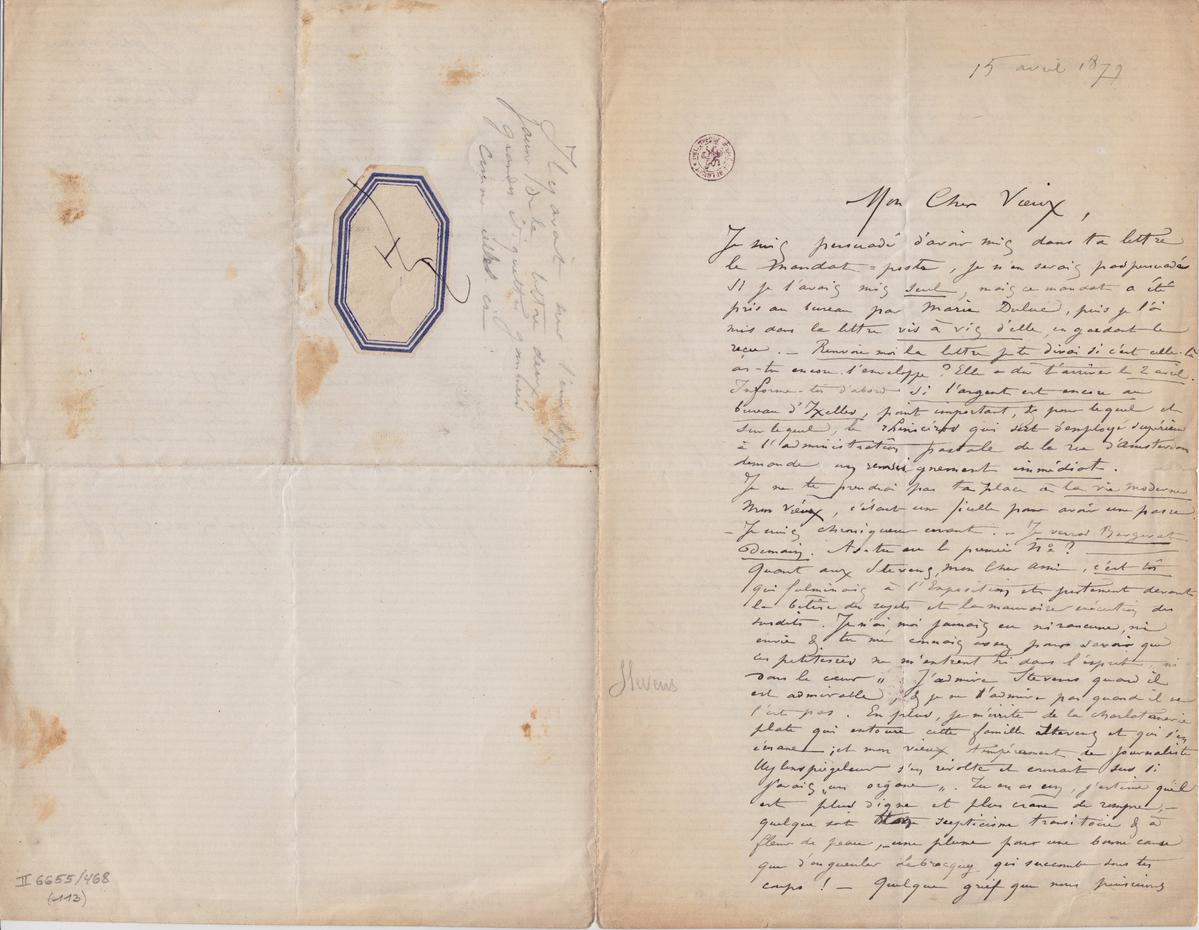 Il y avait sur l'enveloppe
jaune de la lettre deux
grandes étiquettes gommées
comme celles-ci
II 6655/468
(113)
15 avril 1879
Mon Cher Vieux,
Je suis persuadé d'avoir mis dans ta lettre
le mandat-poste, je n'en serais pas persuadé
si je l'avais mis seul, mais ce mandat a été
pris au bureau par Marie Duluc, puis je l'ai
mis dans la lettre vis à vis d'elle, en gardant le
reçu. — Renvoie moi la lettre je te dirai si c'est celle-là
as-tu encore l'enveloppe? Elle a du t'arriver le 2 avril.
Informe-toi d'abord si l'argent est encore au
bureau d'Ixelles, point important, & pour lequel et
sur lequel, le rhinocéros qui sert d'employé supérieur
à l'administration postale de la rue d'Amsterdam
demande un renseignement immédiat.
Je ne te prendrai pas ta place à la vie moderne
mon vieux, c'était une ficelle pour avoir une passe
— Je suis chroniqueur errant. — Je verrai Bergerat
demain. As-tu eu le premier No?
Quant aux Stevens, mon cher ami, c'est toi
qui fulminais à l'Exposition et justement devant
la bêtise des sujets et la mauvaise exécution des
susdits. Je n'ai moi jamais eu ni rancune, ni
envie & tu me connais assez pour savoir que
ces petitesses ne m'entrent ni dans l'esprit, ni
dans le cœur. J'admire Stevens quand il
est admirable, & je ne l'admire pas quand il ne
l'est pas. En plus, je m'irrite de la charlatanerie
plate qui entoure cette famille Stevens et qui s'en
émane; et mon vieux tempérament de journaliste
Uylenspiegeleur s'en révolte et courait sus si
j'avais „un organe". Tu en as un, j'estime qu'il
est plus digne et plus crâne de rompre,
quelque soit scepticisme transitoire & à
fleur de peau, une plume pour une bonne cause
que d'engueuler Lebrocquy qui succombe sous tes
coups! — Quelque grief que nous puissions
Stevens